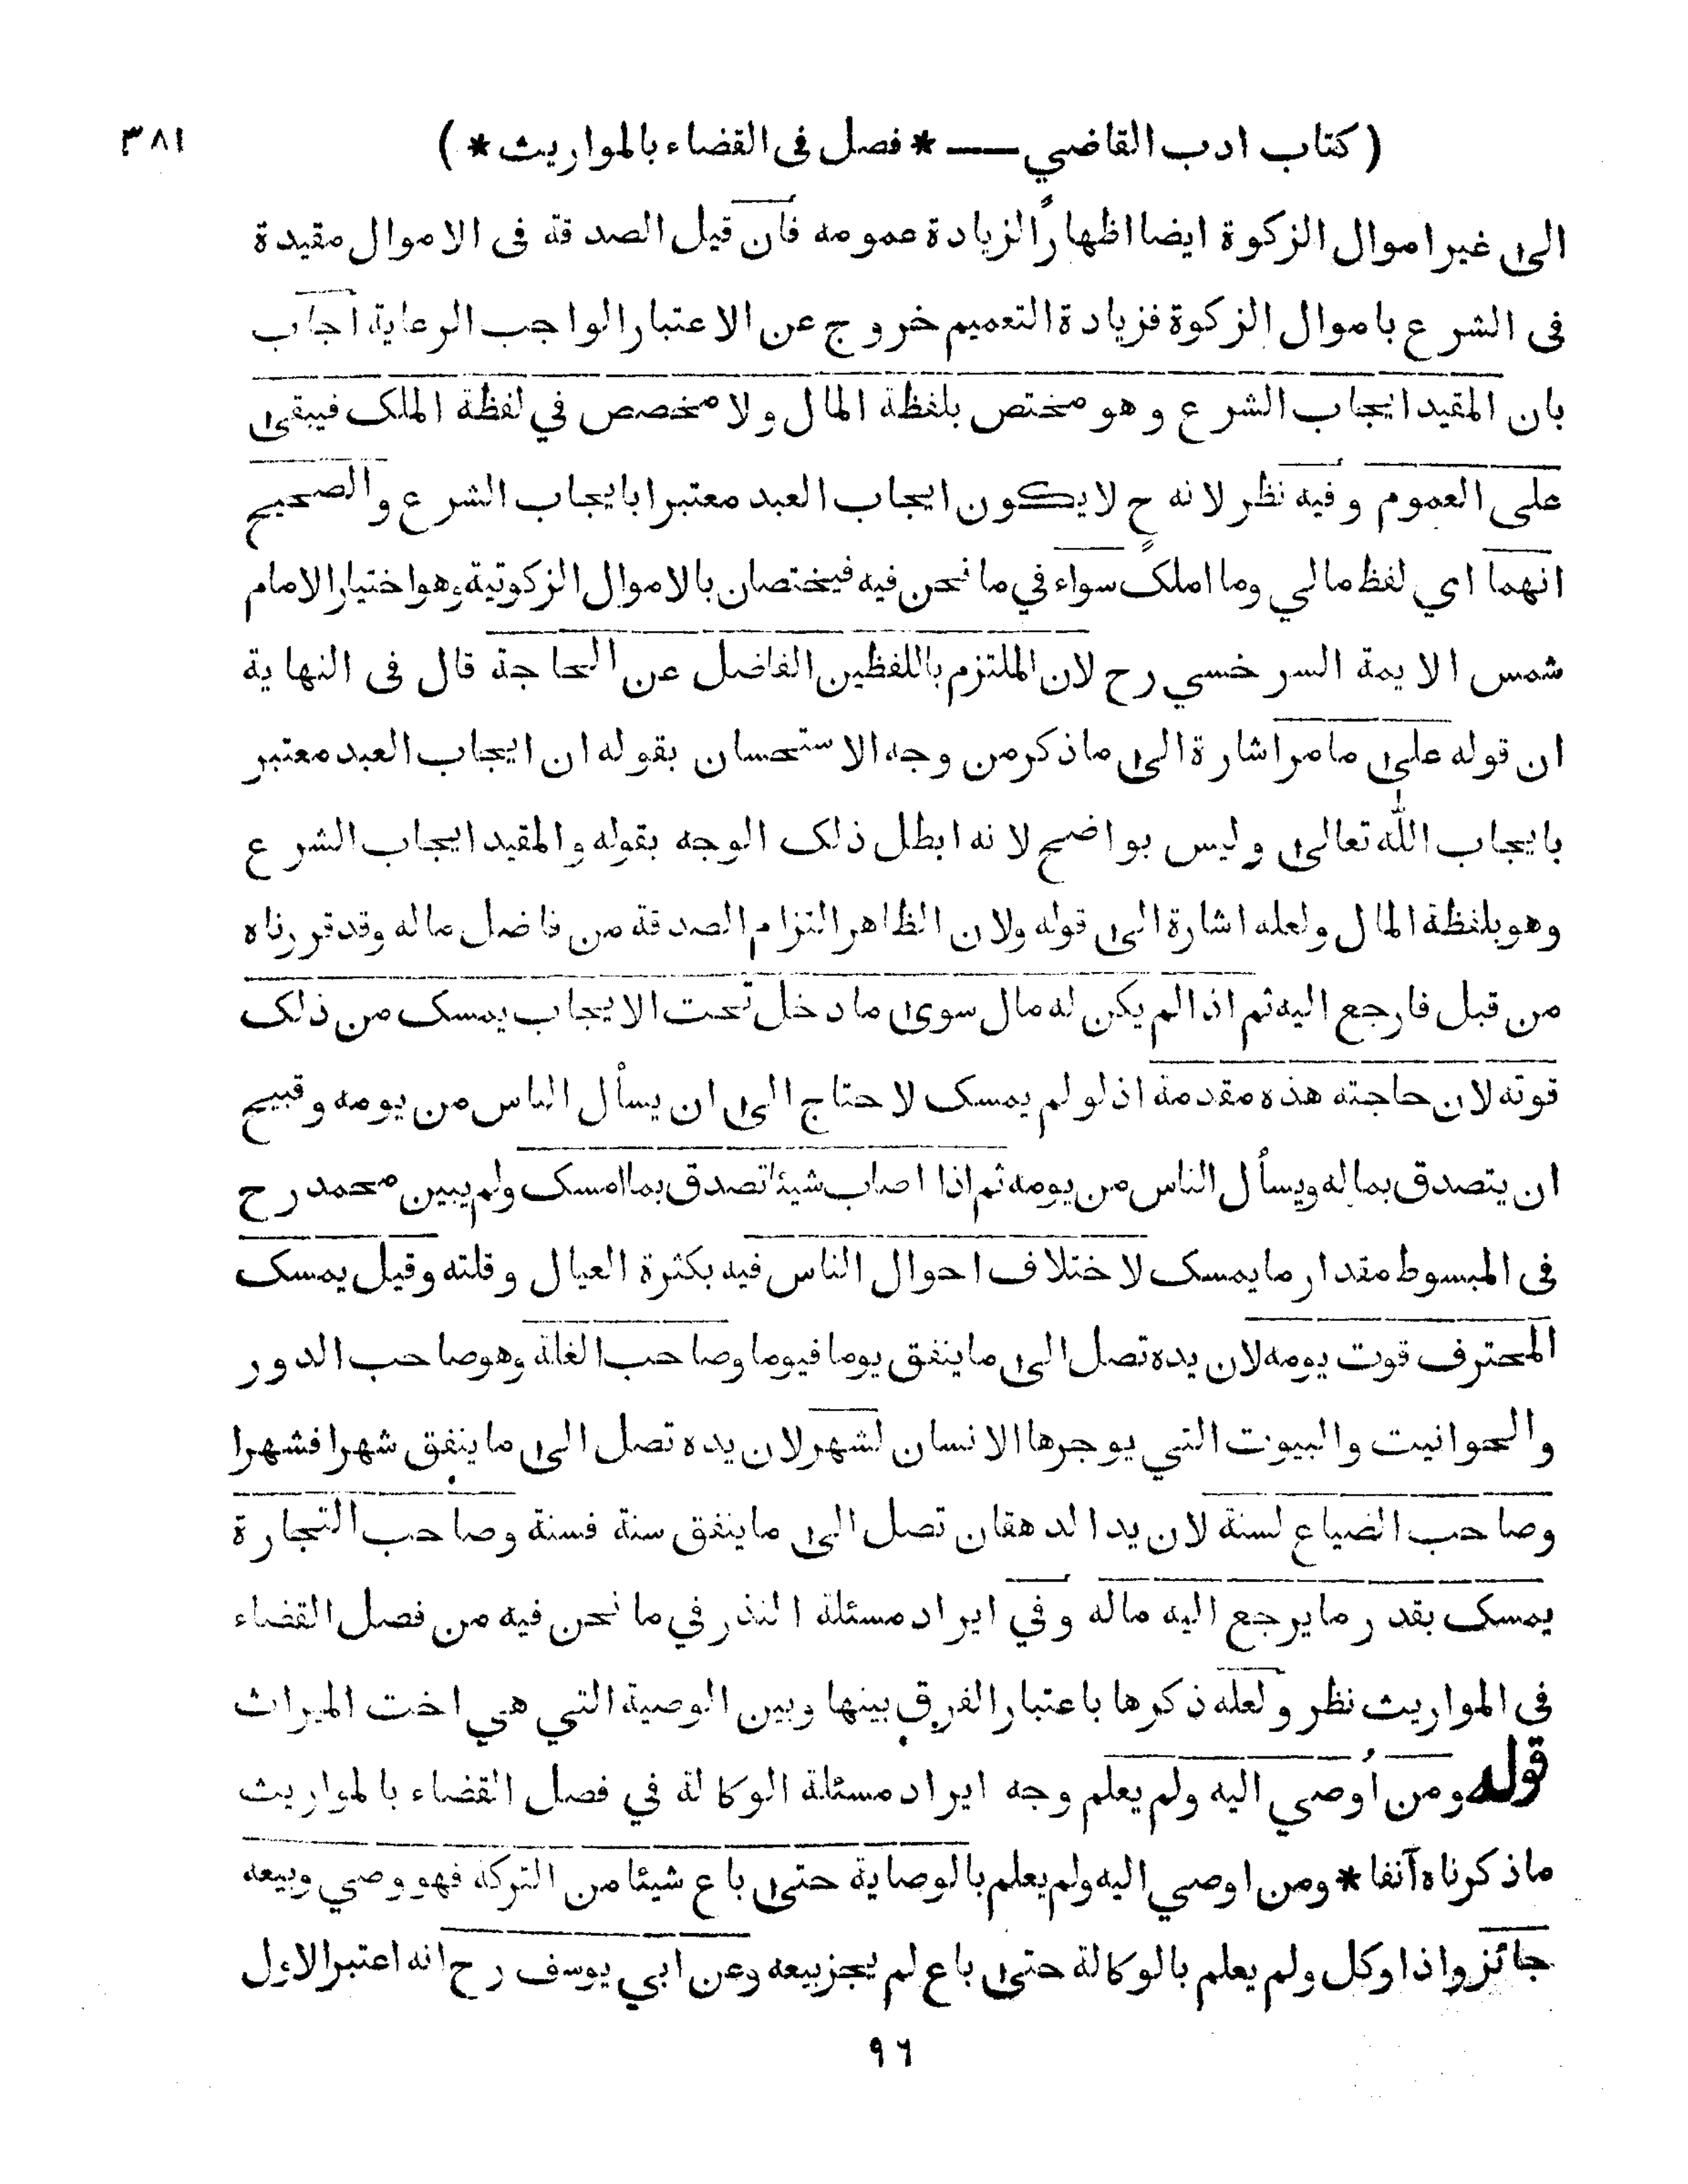 ( كتاب ادب القاضي —— * فصل فى القضاء بالمواريث * ) ٣٨١
الى غير اموال الزكوة ايضا اظهارًا لزيادة عمومه فأن قيل الصدقة فى الاموال مقيدة
فى الشرع باموال الزكوة فزيادة التعميم خروج عن الاعتبار الواجب الرعاية اجاب
بان المقيد ايجاب الشرع وهو مختص بلفظة المال ولا مخصص في لفظة الملک فيبقى
على العموم وفيه نظر لانه ح لا يكون ايجاب العبد معتبرا بايجاب الشرع والصحيح
انهما اي لفظ مالي وما املک سواء في ما نحن فيه فيختصان بالاموال الزكوتية وهو اختيار الامام
شمس الايمة السرخسي رح لان الملتزم باللفظين الفاضل عن الحاجة قال فى النهاية
ان قوله على ما مر اشارة الى ما ذكر من وجه الاستحسان بقوله ان ايجاب العبد معتبر
بايجاب الله تعالى وليس بواضح لانه ابطل ذلک الوجه بقوله والمقيد ايجاب الشرع
وهو بلفظة المال ولعله اشارة الى قوله ولان الظاهر التزام الصدقة من فاضل ماله وقد قررناه
من قبل فارجع اليه ثم اذا لم يكن له مال سوى ما دخل تحت الايجاب يمسک من ذلک
قوته لان حاجته هذه مقدمة اذ لو لم يمسک لاحتاج الى ان يسأل الناس من يومه وقبيح
ان يتصدق بماله ويسأل الناس من يومه ثم اذا اصاب شيئا تصدق بما امسک ولم يبين محمد رح
فى المبسوط مقدار ما يمسک لاختلاف احوال الناس فيه بكثرة العيال وقلته وقيل يمسک
المحترف قوت يومه لان يده تصل الى ما ينفق يوما فيوما وصاحب الغلة وهو صاحب الدور
والحوانيت والبيوت التي يوجرها الانسان لشهر لان يده تصل الى ما ينفق شهرا فشهرا
وصاحب الضياع لسنة لان يد الدهقان تصل الى ما ينفق سنة فسنة وصاحب التجارة
يمسک بقدر ما يرجع اليه ماله وفي ايراد مسئلة النذر في ما نحن فيه من فصل القضاء
فى المواريث نظر ولعله ذكرها باعتبار الفرق بينها وبين الوصية التي هي اخت الميراث
قوله ومن أوصي اليه ولم يعلم وجه ايراد مسئلة الوكالة في فصل القضاء بالمواريث
ما ذكرناه آنفا * ومن اوصي اليه ولم يعلم بالوصاية حتى باع شيئا من التركة فهو وصي وبيعه
جائز واذا وكل ولم يعلم بالوكالة حتى باع لم يجز بيعه وعن ابي يوسف رح انه اعتبر الاول
٩٦